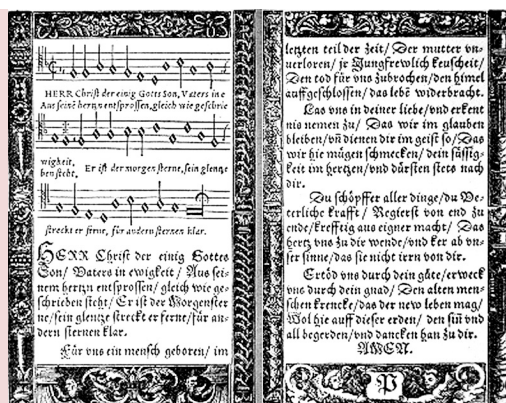 HERR Christ der einig Gotts Son, Vaters in e
Aus seinē hertzn entsprossen, gleich wie geschrie
wigheit,
ben steht, Er ist der morgen sterne, sein glentze
streckt er ferne, für andern sternen klar.
HERR Christ der einig Gottes
Son/ Vaters in ewigkeit / Aus sei-
nem hertzn entsprossen/ gleich wie ge-
schrieben steht/ Er ist der Morgenster
ne/sein glentze streckt er ferne/für an-
dern sternen klar.
Für vns ein mensch geboren/ im
letzten teil der zeit/ Der mutter vn-
uerloren/ jr Jungfrewlich keuscheit/
Den tod für vns zubrochen/den himel
auffgeschlossen/ das lebē widerbracht.
Las vns in deiner liebe/vnd erkent
nis nemen zu/ Das wir im glauben
bleiben/vn̄ dienen dir im geist so/Das
wir hie mügen schmecken/ dein süssig-
keit im hertzen/vnd dürsten stets nach
dir.
Du schöpffer aller dinge/du Ve-
terliche krafft / Regierst von end zu
ende/krefftig aus eigner macht/ Das
hertz vns zu dir wende/vnd ker ab vn-
ser sinne/das sie nicht irrn von dir.
Ertöd vns durch dein güte/erweck
vns durch dein gnad/ Den alten men-
schen krencke/das der new leben mag/
Wol hie auff dieser erden/ den sin̄ vnd
all begerden/vnd dancken han zu dir.
AMEN.
P